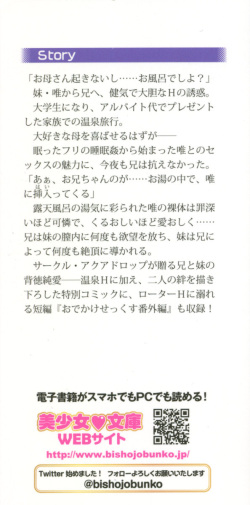 Story
「お母さん起きないし……お風呂でしよ？」
妹・唯から兄へ、健気で大胆なHの誘惑。
大学生になり、アルバイト代でプレゼント
した家族での温泉旅行。
大好きな母を喜ばせるはずが──
眠ったフリの睡眠姦から始まった唯とのセ
ックスの魅力に、今夜も兄は抗えなかった。
「あぁ、お兄ちゃんのが……お湯の中で、唯
に挿入ってくる」
露天風呂の湯気に彩られた唯の裸体は罪深
いほど可憐で、くるおしいほど愛おしく……
兄は妹の膣内に何度も欲望を放ち、妹は兄に
よって何度も絶頂に導かれる。
サークル・アクアドロップが贈る兄と妹の
背徳純愛──温泉Hに加え、二人の絆を描き
下ろした特別コミックに、ローターHに溺れ
る短編『おでかけせっくす番外編』も収録！
電子書籍がスマホでもPCでも読める！
美少女♥文庫
WEBサイト
http://www.bishojobunko.jp/
Twitter 始めました！ フォローよろしくお願いいたします
@bishojobunko